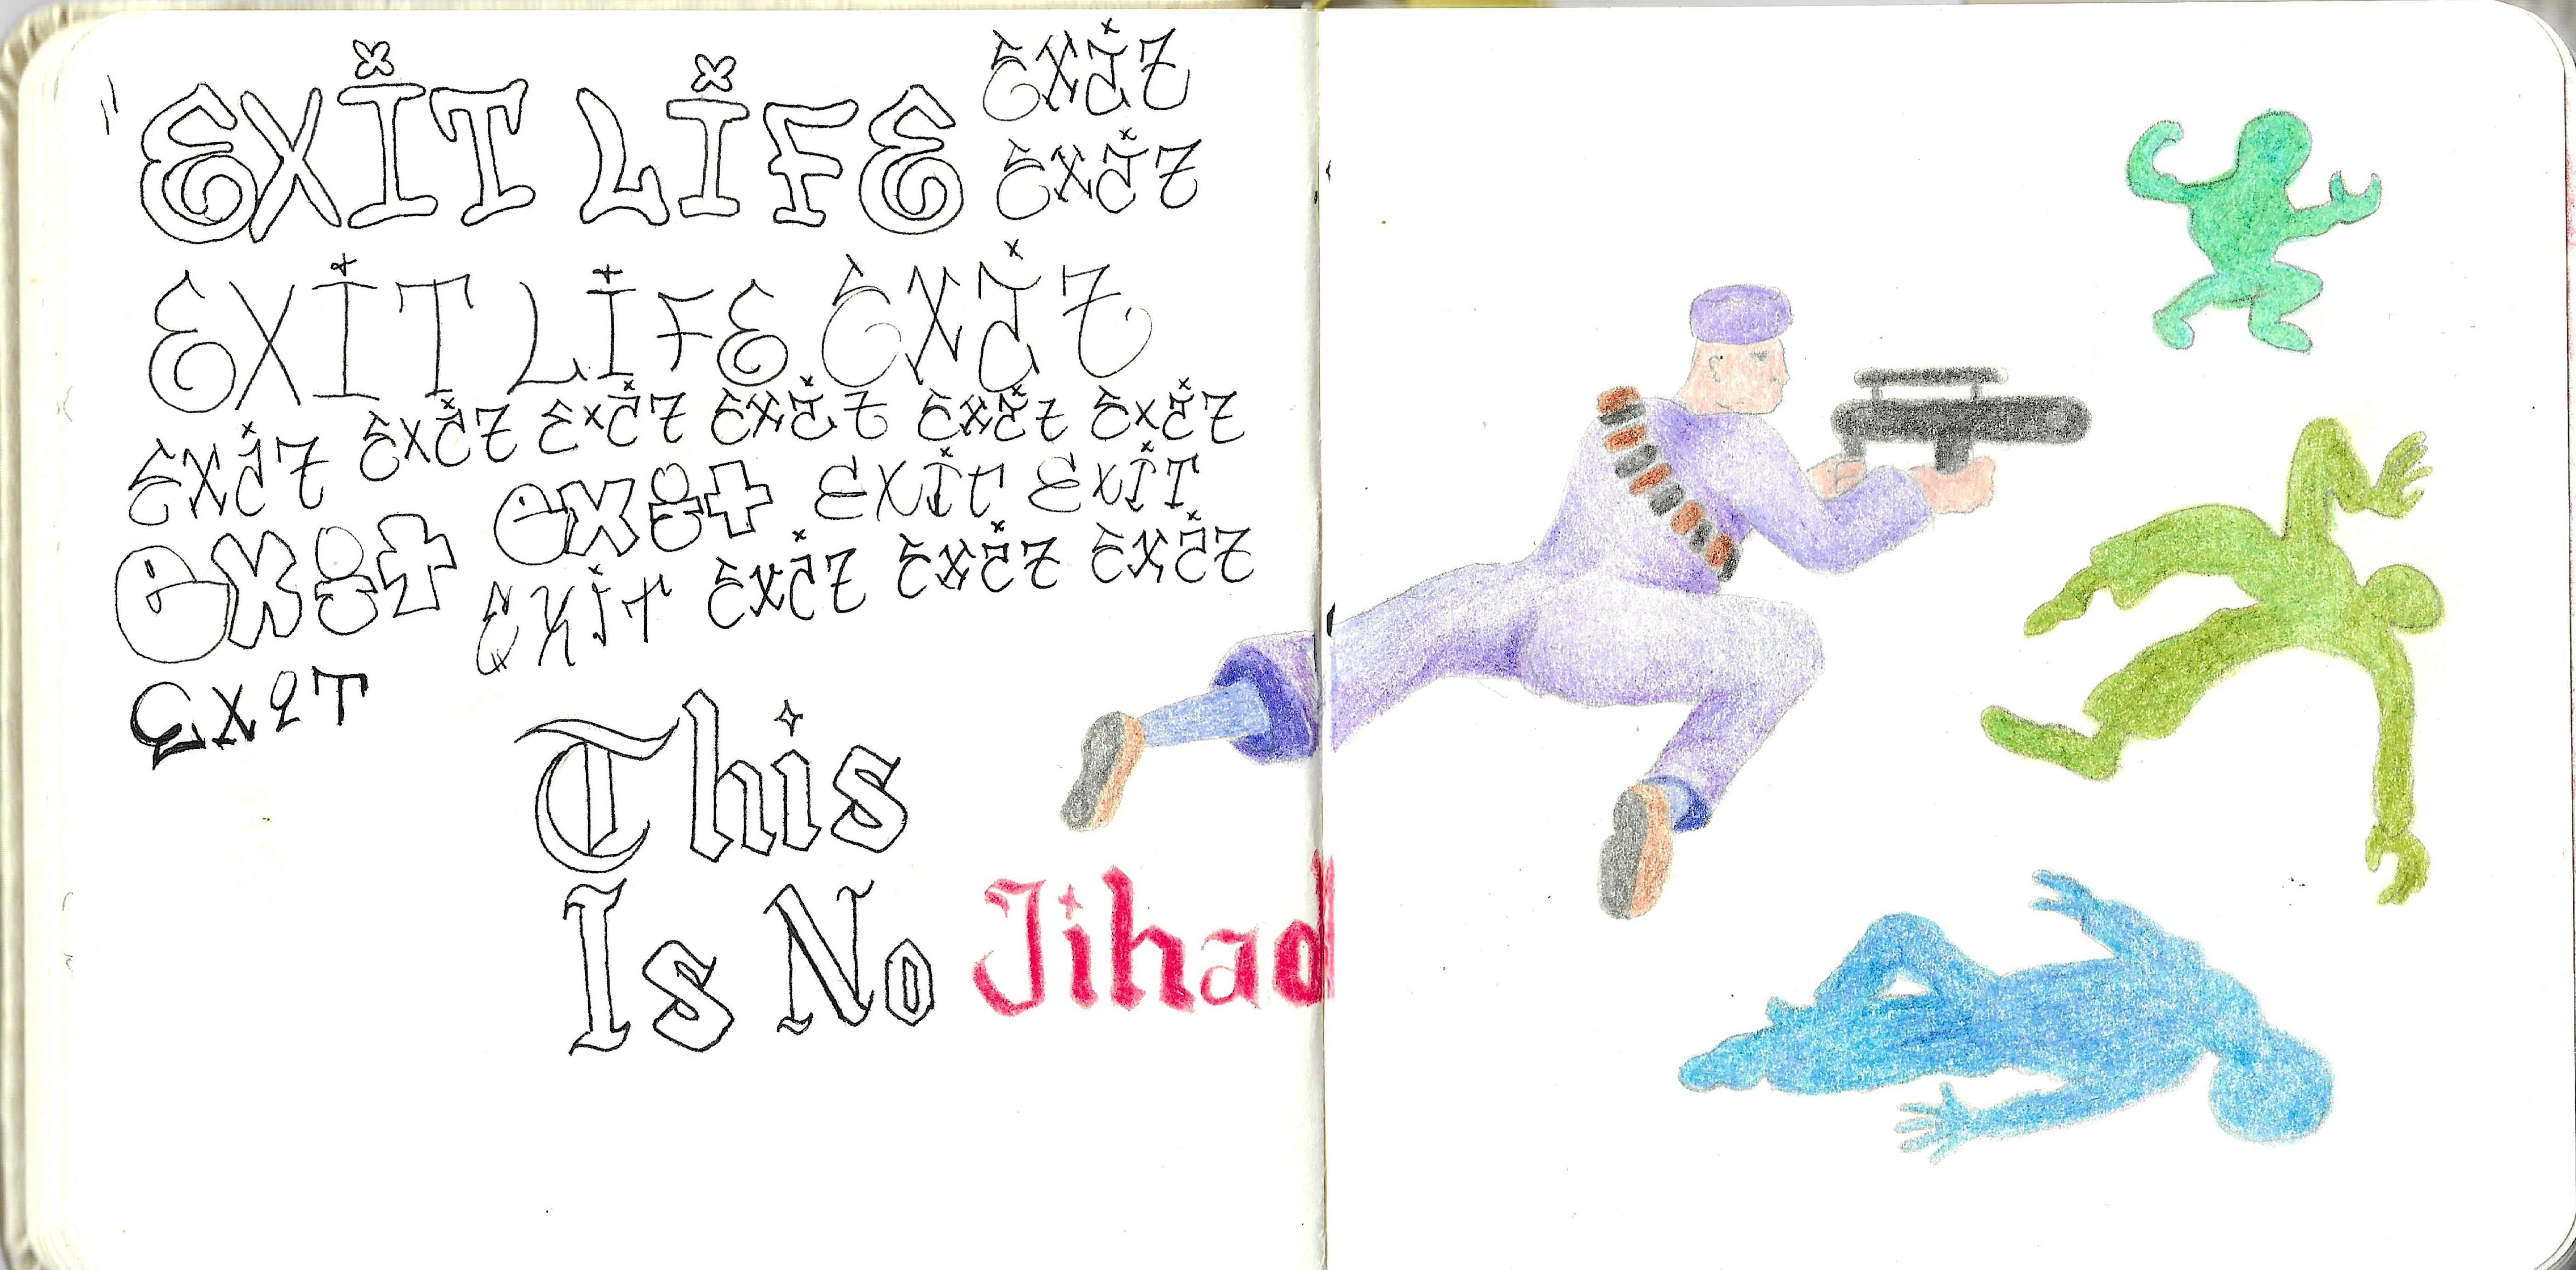 "EXIT LIFE EXIT
EXIT
EXIT LIFE EXIT
EXIT EXIT EXIT EXIT EXIT EXIT
exit exit EXIT EXIT
EXIT EXIT EXIT EXIT
EXIT
This
Is No Jihad